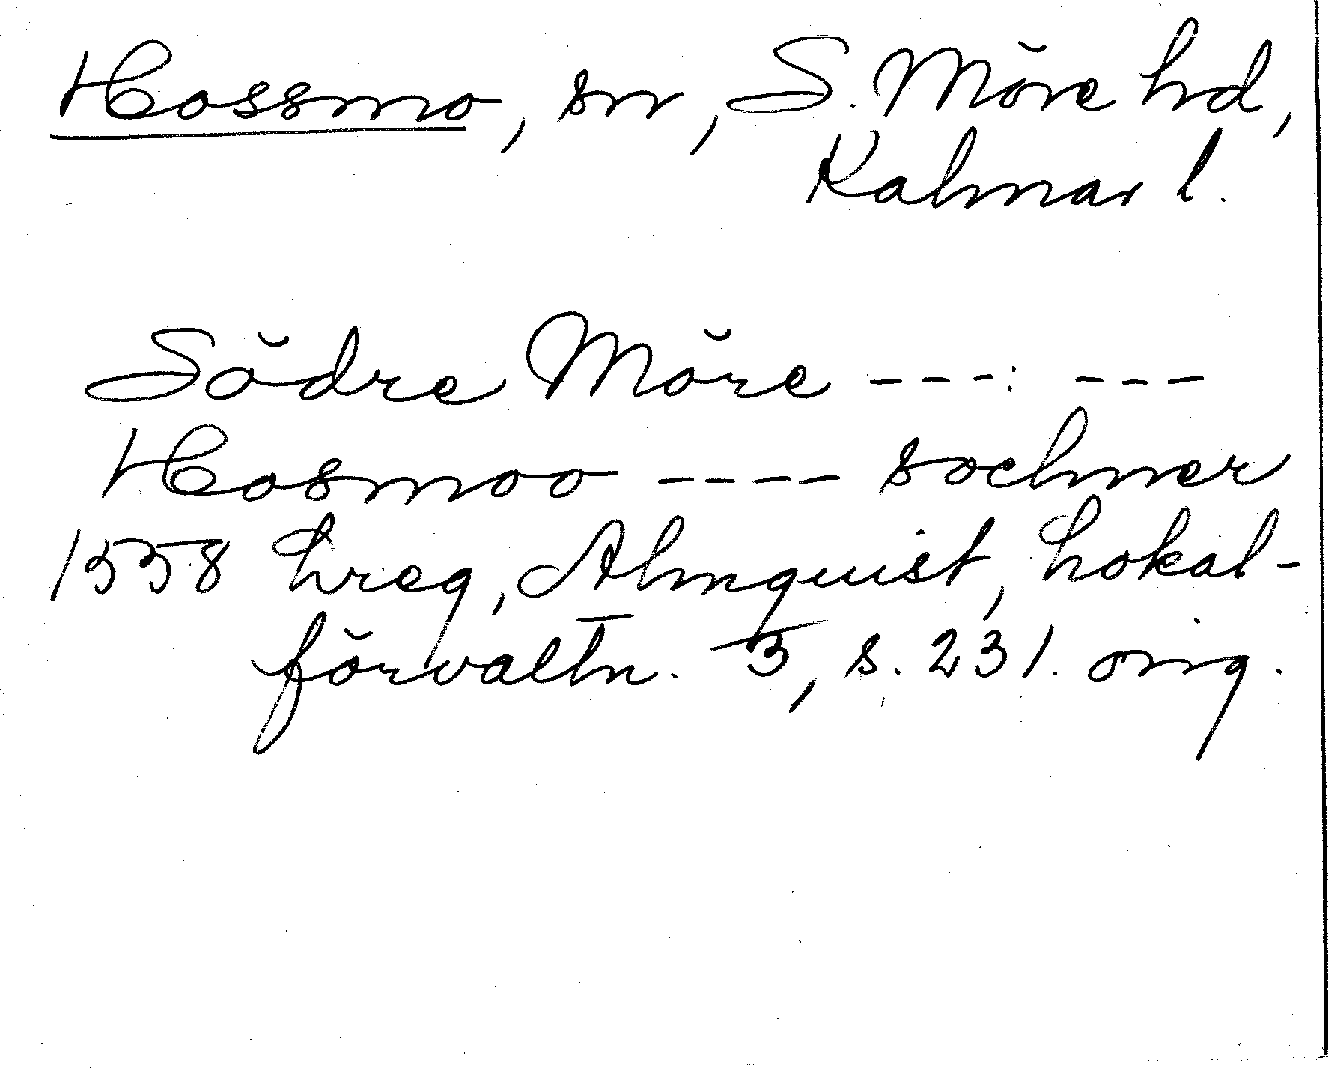 Hossmo, sn, S. Möre hd,
Kalmar l.
Södre Möre ---: ---
Hosmoo ---- sochner
1558 Lreg, Almquist, Lokal-
förvaltn. 3, s. 231. orig.